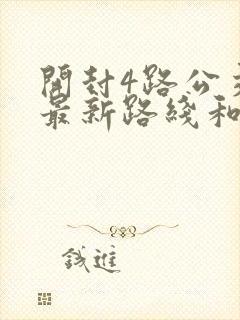 開封4路公
最新路綫和
錢進